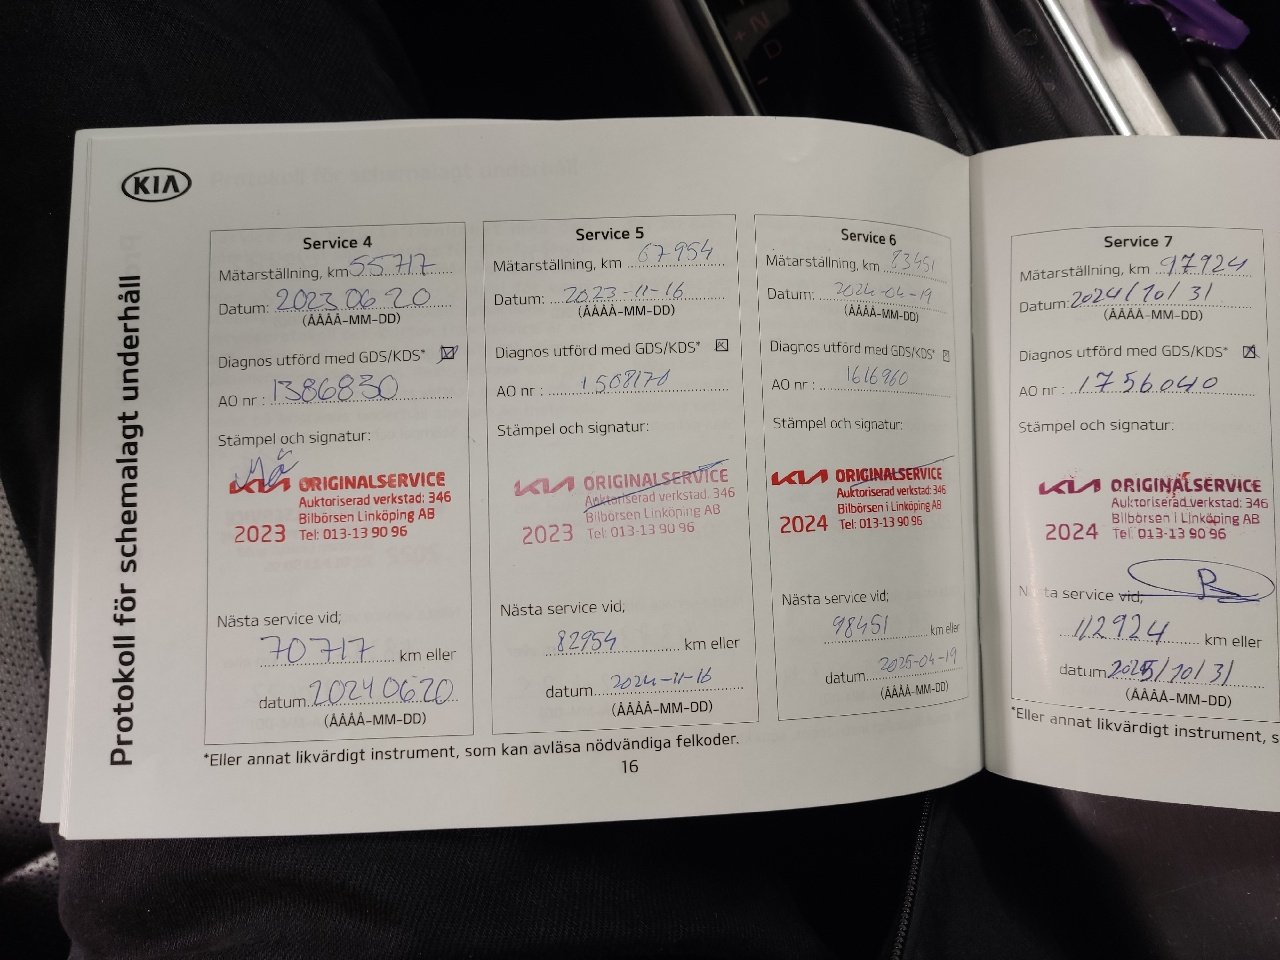 KIA
Protokoll för schemalagt underhåll
Service 4
Mätarställning, km 55717
Datum: 2023 06 20
(ÅÅÅÅ-MM-DD)
Diagnos utförd med GDS/KDS*
AO nr : 1386830
Stämpel och signatur:
KIA ORIGINALSERVICE
Auktoriserad verkstad: 346
Bilbörsen Linköping AB
2023 Tel: 013-13 90 96
Nästa service vid;
70717 km eller
datum 2024 06 20
(ÅÅÅÅ-MM-DD)
Service 5
Mätarställning, km 67954
Datum: 2023-11-16
(ÅÅÅÅ-MM-DD)
Diagnos utförd med GDS/KDS*
AO nr : 1508170
Stämpel och signatur:
KIA ORIGINALSERVICE
Auktoriserad verkstad: 346
Bilbörsen Linköping AB
2023 Tel: 013-13 90 96
Nästa service vid;
82954 km eller
datum 2024-11-16
(ÅÅÅÅ-MM-DD)
Service 6
Mätarställning, km 83451
Datum: 2024-04-19
(ÅÅÅÅ-MM-DD)
Diagnos utförd med GDS/KDS*
AO nr : 1616960
Stämpel och signatur:
KIA ORIGINALSERVICE
Auktoriserad verkstad: 346
Bilbörsen i Linköping AB
2024 Tel: 013-13 90 96
Nästa service vid;
98451 km eller
datum 2025-04-19
(ÅÅÅÅ-MM-DD)
*Eller annat likvärdigt instrument, som kan avläsa nödvändiga felkoder.
16
Service 7
Mätarställning, km 97924
Datum: 2024/10/31
(ÅÅÅÅ-MM-DD)
Diagnos utförd med GDS/KDS*
AO nr : 1756040
Stämpel och signatur:
KIA ORIGINALSERVICE
Auktoriserad verkstad: 346
Bilbörsen i Linköping AB
2024 Tel: 013-13 90 96
Nästa service vid;
112924 km eller
datum 2025/10/31
(ÅÅÅÅ-MM-DD)
*Eller annat likvärdigt instrument, s